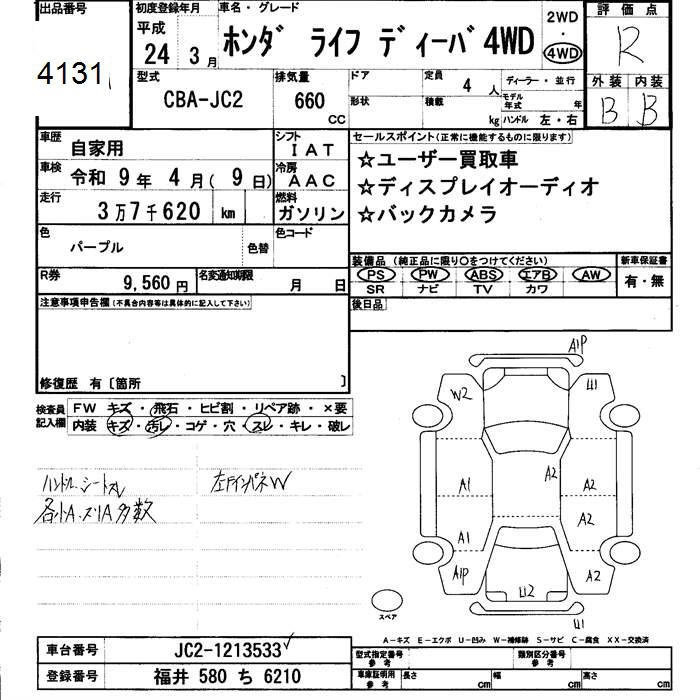 出品番号
4131
初度登録年月
平成
24 3月
車名・グレード
ホンダ ライフ ディーバ 4WD
2WD
・
4WD
評価点
R
型式
CBA-JC2
排気量
660
cc
ドア
形状
定員
4人
積載
kg
ディーラー・並行
モデル年式 年
ハンドル 左・右
外装 内装
B B
車歴
自家用
シフト
IAT
車検
令和 9年 4月( 9日)
冷房
AAC
走行
3万7千620 km
燃料
ガソリン
色
パープル
色替
色コード
R券
9,560円
名変通知期限
月 日
セールスポイント(正常に機能するものに限ります)
☆ユーザー買取車
☆ディスプレイオーディオ
☆バックカメラ
装備品(純正品に限り〇をつけてください)
PS PW ABS エアB AW
SR ナビ TV カワ
新車保証書
有・無
注意事項申告欄(不具合内容等は具体的に記入して下さい)
後日品
修復歴 有〔箇所 〕
検査員記入欄
FW キズ・飛石・ヒビ割・リペア跡・×要
内装 キズ・汚レ・コゲ・穴・スレ・キレ・破レ
ハンドル、シートスレ
各小A、ズリA多数
左FインパネW
A1P
W2
U1
A1
A2
A2
A1
A2
A1P
A2
U2
U1
スペア
A-キズ E-エクボ U-凹み W-補修跡 S-サビ C-腐食 XX-交換済
車台番号
JC2-1213533
登録番号
福井 580 ち 6210
型式指定番号
参考
類別区分番号
参考
車庫証明用
参考
長さ cm
幅 cm
高さ cm